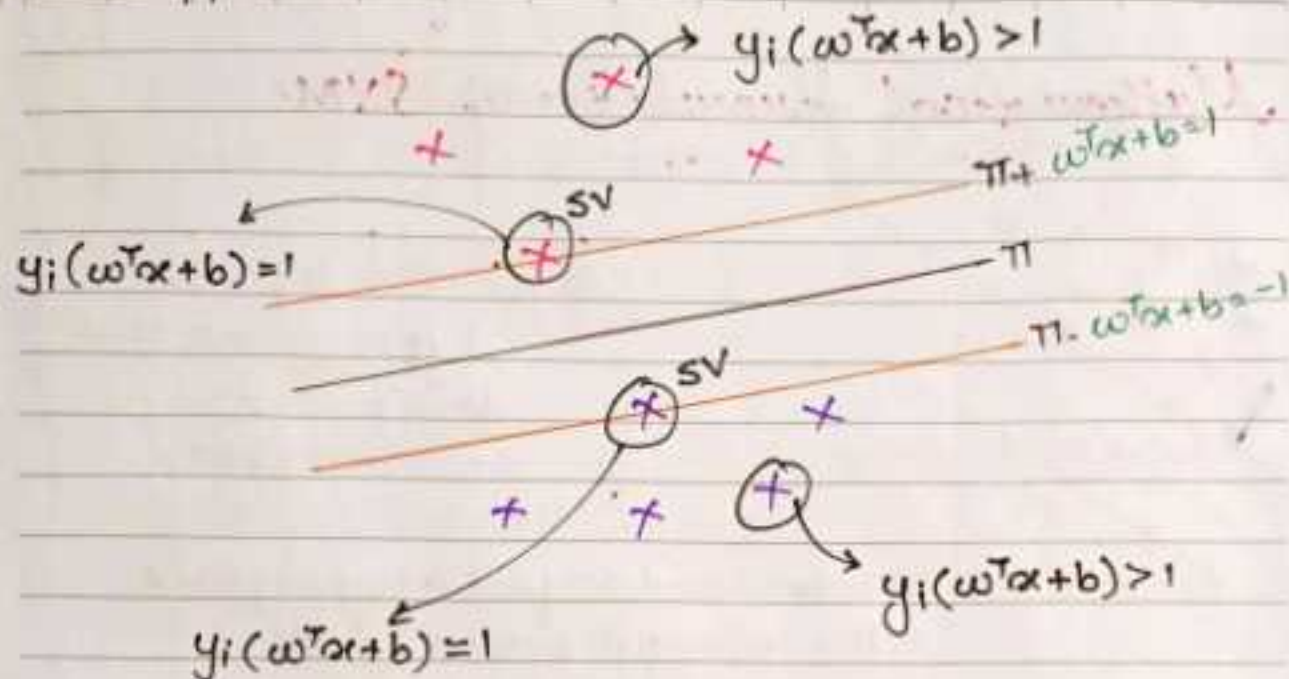 yi(ωᵀx+b) > 1
π+ ωᵀx+b=1
SV
yi(ωᵀx+b)=1
π
π- ωᵀx+b=-1
SV
yi(ωᵀx+b) > 1
yi(ωᵀx+b) = 1